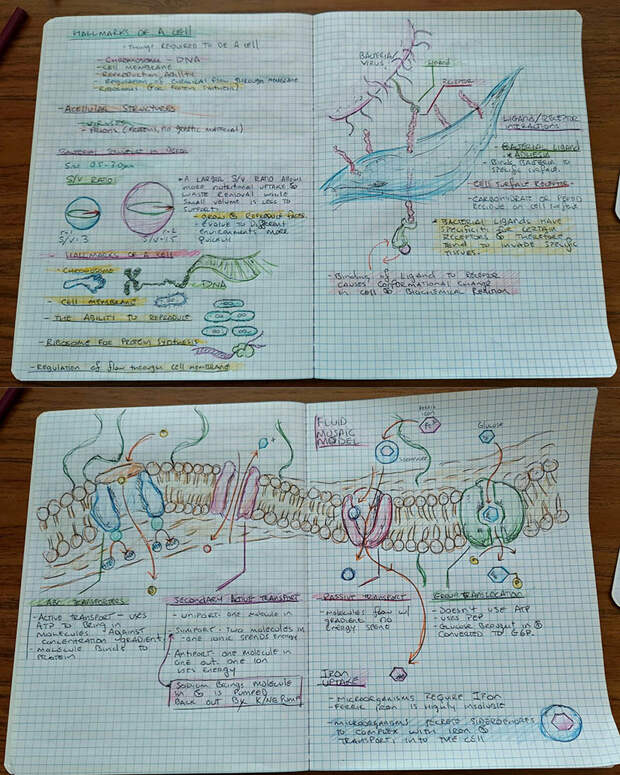 HALLMARKS OF A CELL
- Things REQUIRED TO BE A CELL
- CHROMOSOME - DNA
- CELL MEMBRANE
- REPRODUCTION ABILITY
- REGULATION OF CHEMICAL FLOW THROUGH MEMBRANE
- RIBOSOMES (FOR PROTEIN SYNTHESIS)
- ACELLULAR STRUCTURES
- VIRUSES
- PRIONS (PROTEINS, NO GENETIC MATERIAL)
S/V RATIO
r=1
S/V=3
r=2
S/V=1.5
• A LARGER S/V RATIO ALLOWS
MORE NUTRITIONAL UPTAKE &
WASTE REMOVAL WHILE
SMALL VOLUME IS LESS TO
SUPPORT.
- GROW & REPRODUCE FASTER
- EVOLVE TO DIFFERENT
ENVIRONMENTS MORE
QUICKLY
- HALLMARKS OF A CELL
- CHROMOSOME
DNA
- CELL MEMBRANE
- THE ABILITY TO REPRODUCE
- RIBOSOME FOR PROTEIN SYNTHESIS
- REGULATION OF FLOW THROUGH CELL MEMBRANE
BACTERIA/
VIRUS
LIGAND
RECEPTOR
LIGAND/RECEPTOR
INTERACTIONS
- BACTERIAL LIGAND
ADHESIN
- BINDS BACTERIA TO
SPECIFIC SURFACE.
CELL SURFACE RECEPTOR
- CARBOHYDRATE OR
RESIDUE ON CELL SURFACE
• BACTERIAL LIGANDS HAVE
SPECIFICITY FOR CERTAIN
RECEPTORS & THEREFORE
TEND TO INVADE SPECIFIC
TISSUES.
- BINDING OF LIGAND TO RECEPTOR
CAUSES CONFORMATIONAL CHANGE
IN CELL & BIOCHEMICAL REACTION
FLUID
MOSAIC
MODEL
FERRIC
Fe3+
SIDEROPHORE
GLUCOSE
ABC TRANSPORTERS
- ACTIVE TRANSPORT - USES
ATP TO BRING IN
MOLECULES AGAINST
CONCENTRATION GRADIENT
- MOLECULE BINDS TO
PROTEIN
SECONDARY ACTIVE TRANSPORT
- UNIPORT - ONE MOLECULE IN
SYMPORT - TWO MOLECULES IN
- ONE IONIC SPENDS ENERGY
ANTIPORT - ONE MOLECULE IN
ONE OUT. ONE ION
USES ENERGY
SODIUM BRINGS MOLECULE
IN & IS PUMPED
BACK OUT BY K/Na PUMP
PASSIVE TRANSPORT
- MOLECULES FLOW w/
GRADIENT NO
ENERGY SPENT
GROUP TRANSLOCATION
- DOESN'T USE ATP
- USES PEP
- GLUCOSE BROUGHT IN &
CONVERTED TO G6P.
IRON
UPTAKE
- MICROORGANISMS REQUIRE IRON
- FERRIC IRON IS HIGHLY INSOLUBLE
- MICROORGANISMS SECRETE SIDEROPHORES
TO COMPLEX WITH IRON &
TRANSPORT INTO THE CELL